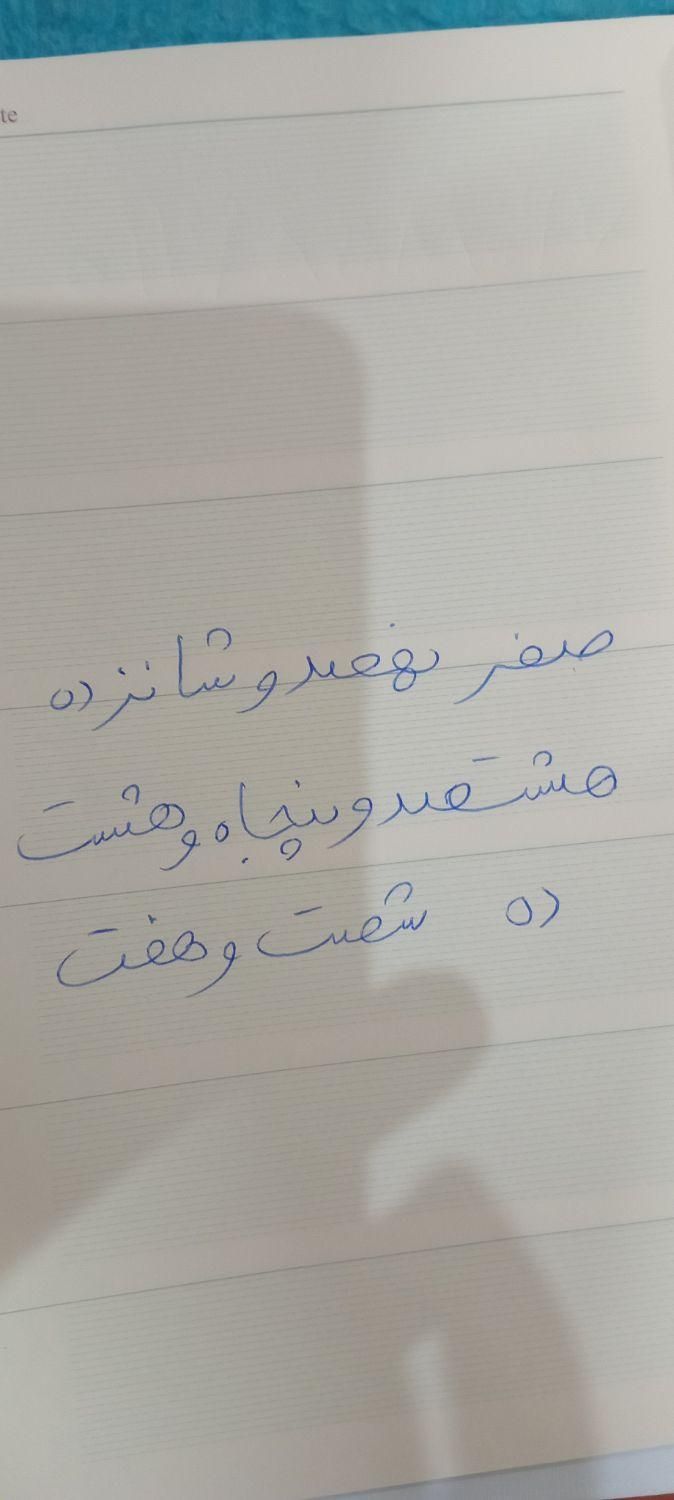 te
صفر نهصد و شانزده
هشتصد و پنجاه و هشت
ده شصت و هفت